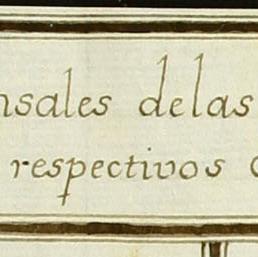 nsales delas
respectivos